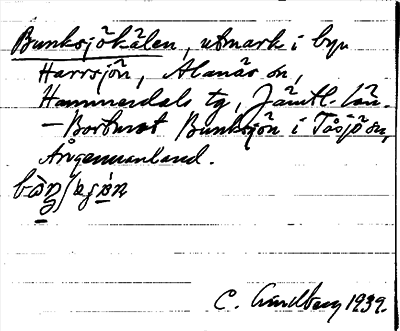 Bunksjökälen, utmark i byn
Harrsjön, Alanäs sn,
Hammerdals tg, Jämtl. län.
– Bortmot Bunksjön i Tåsjö sn,
Ångermanland.
C. Lundberg 1939.